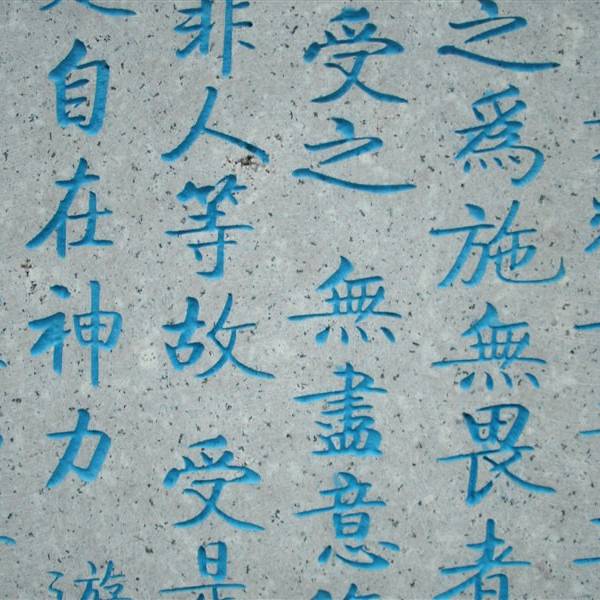 之為施無畏者
受之 無盡意
非人等故 受是
自在神力 遊